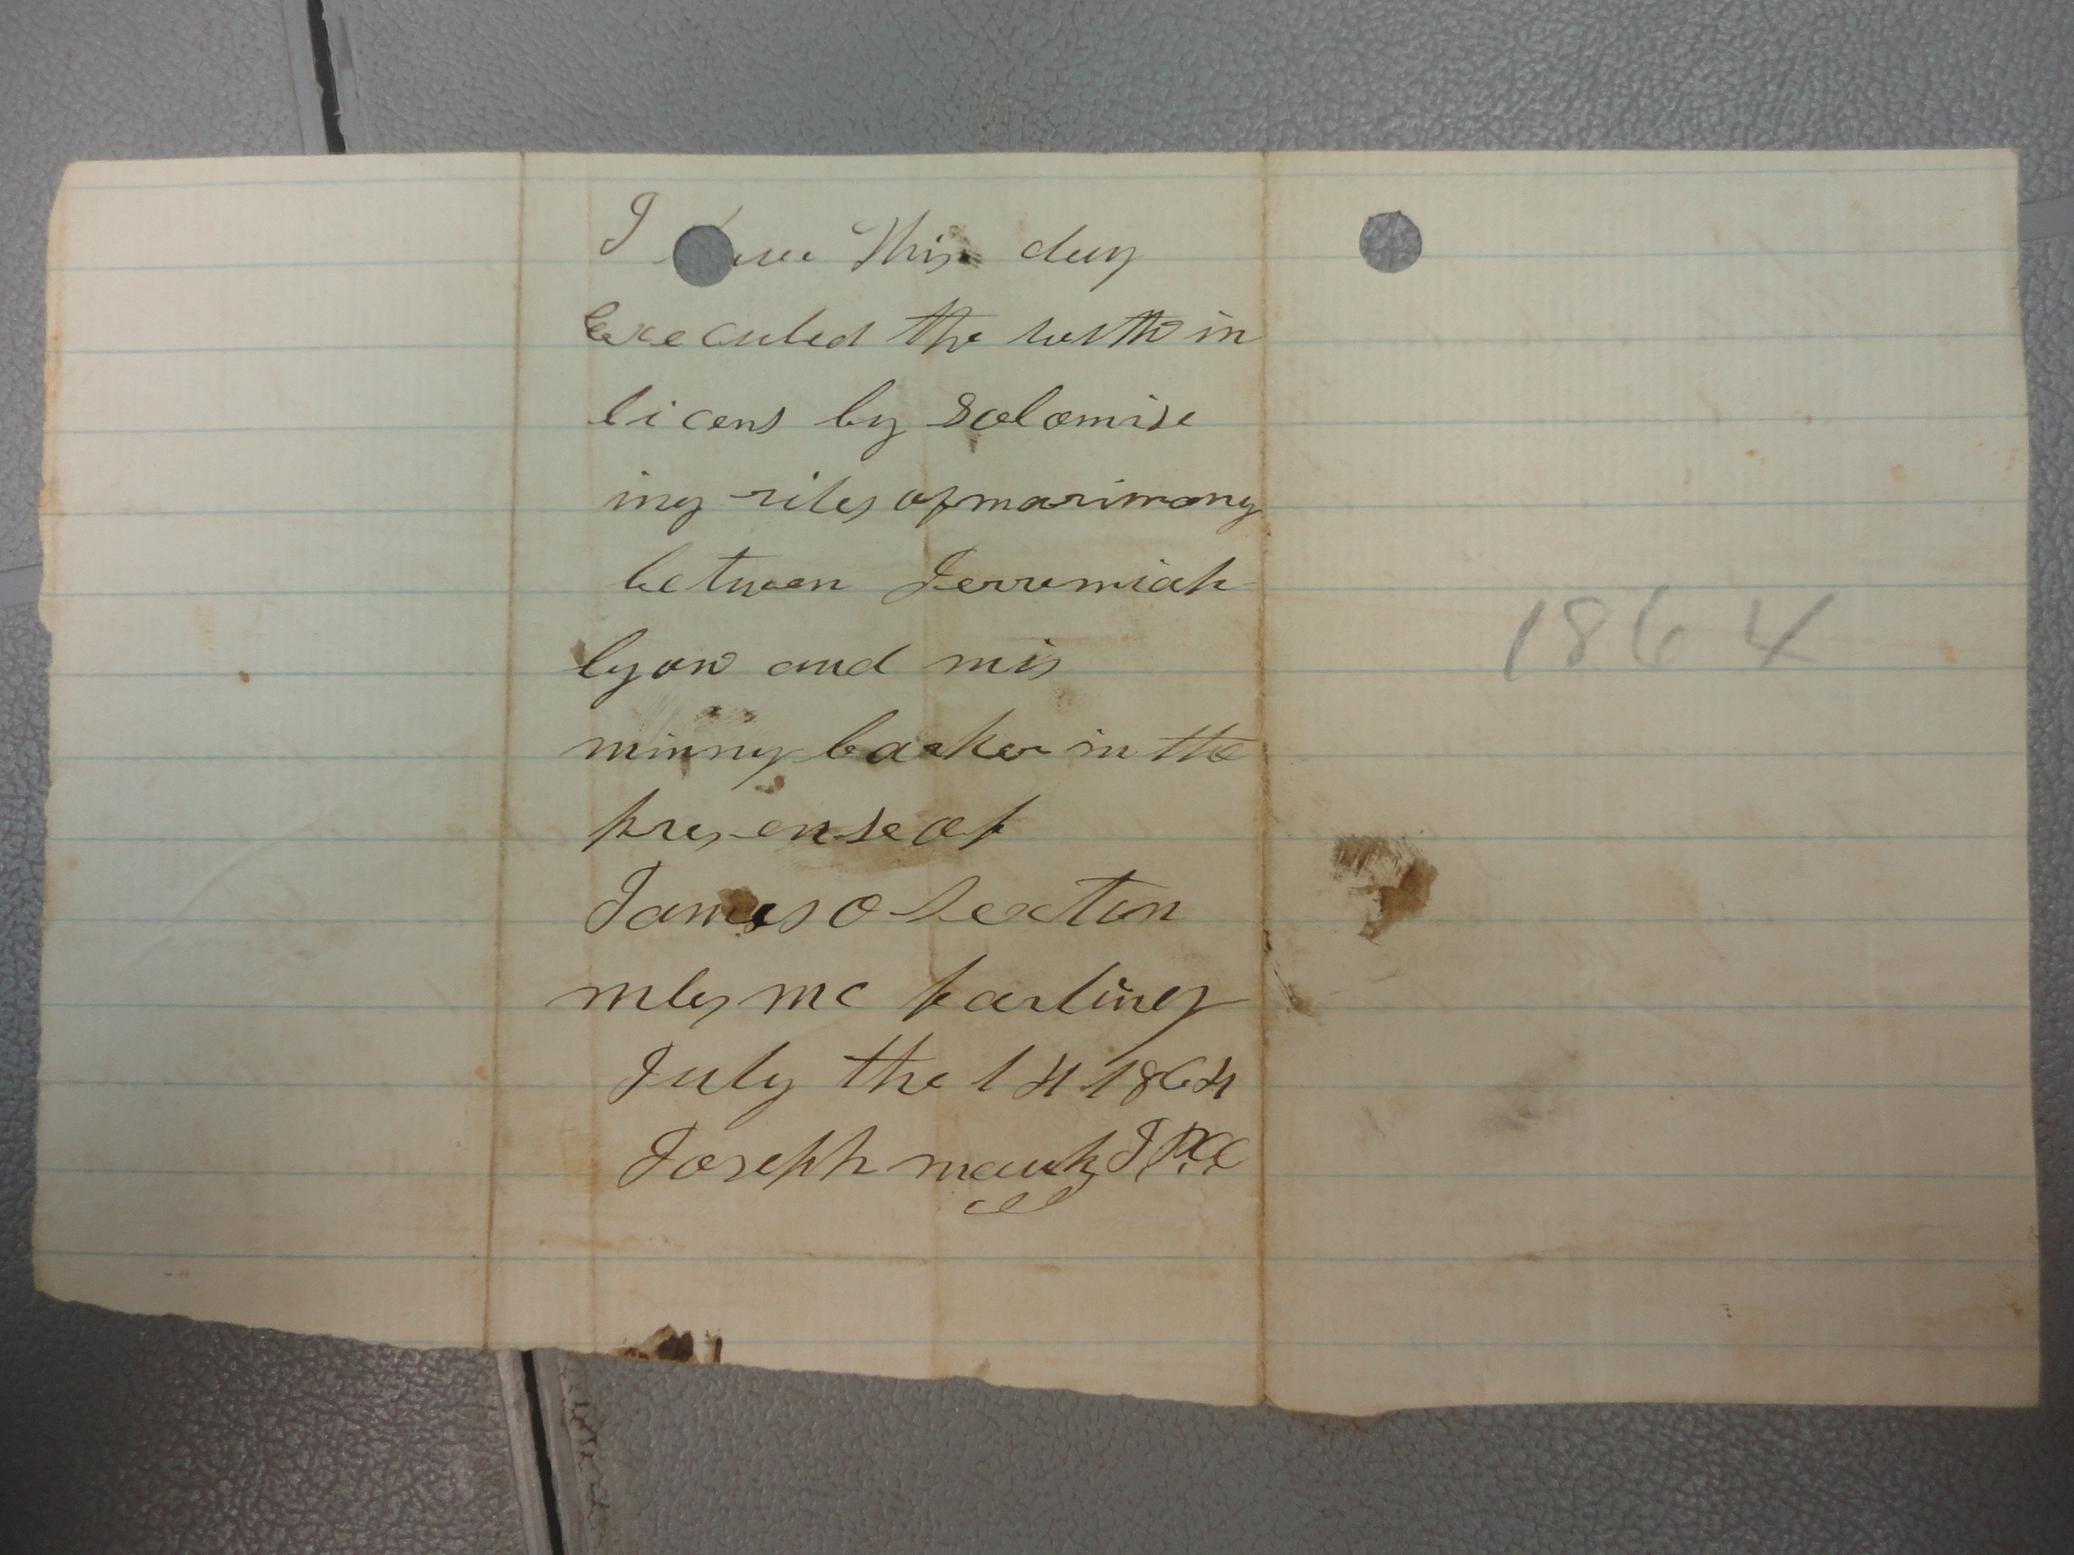 I have this day
Executed the within
licens by Solomise
ing rites of marimony
between Jerremiah
lyon and mis
minny barker in the
presense of
James O Sexton
mc farling
July the 14 1864
Joseph mauk J.P.C.C
1864